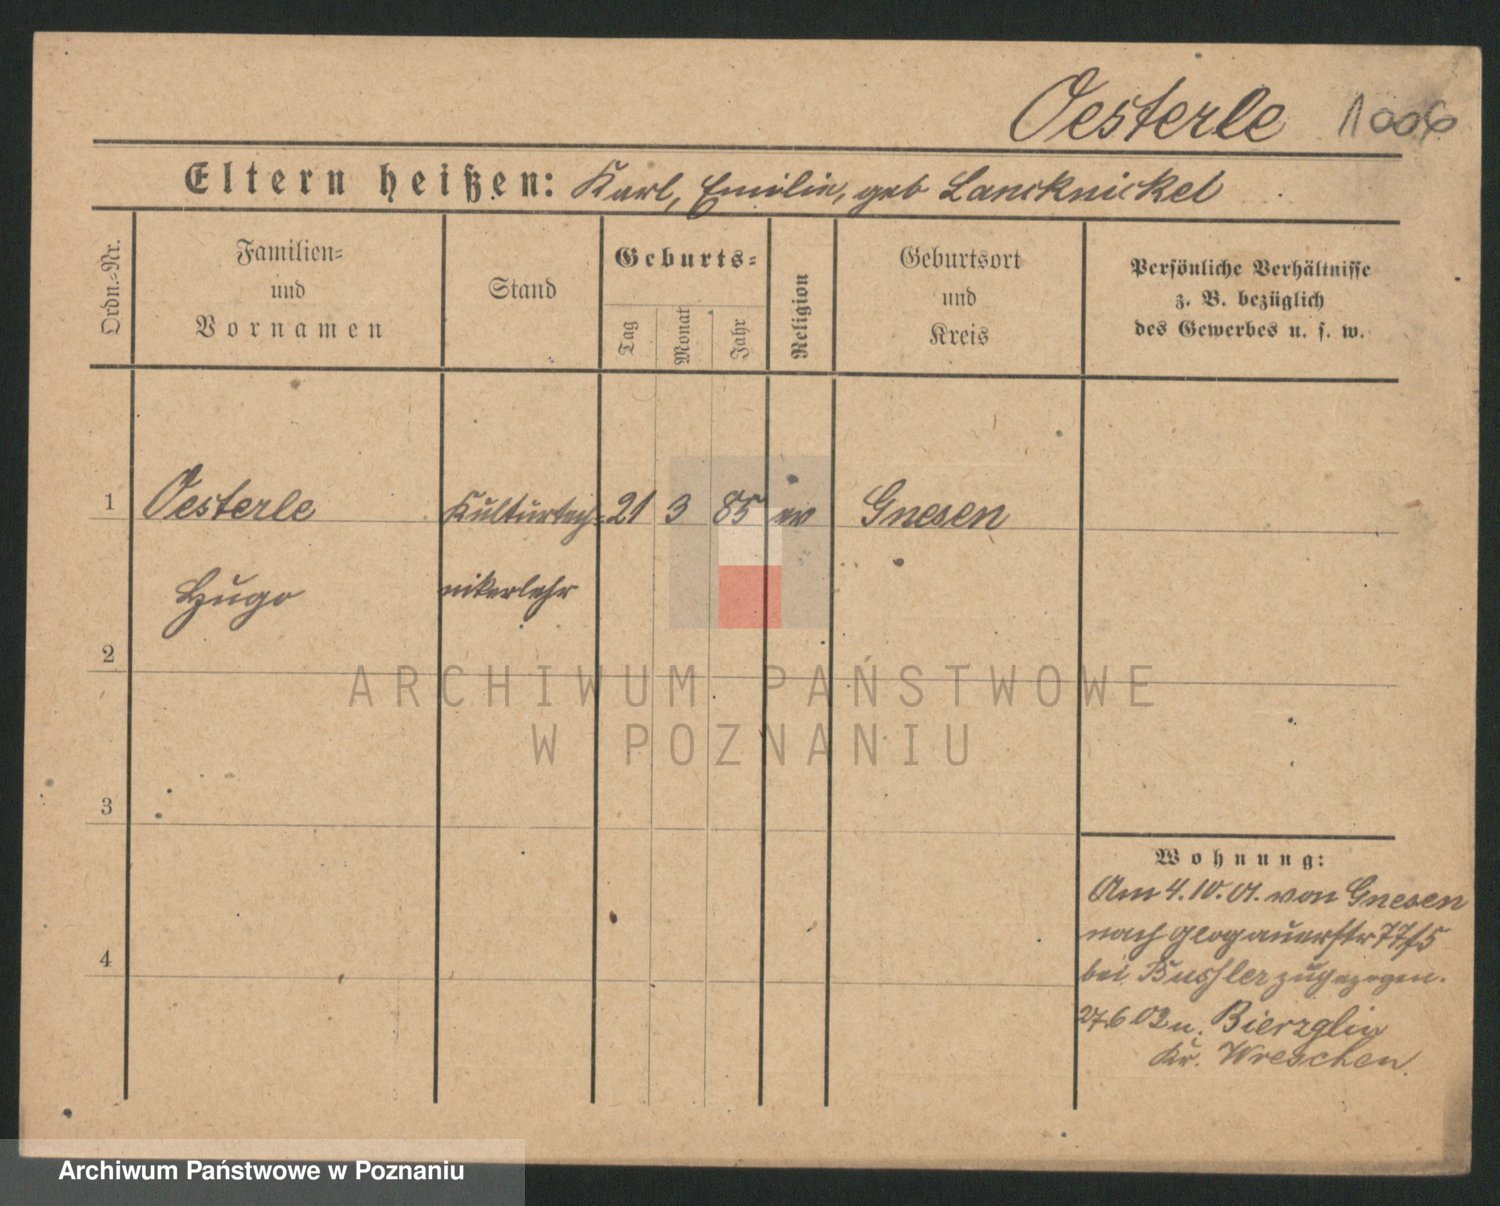 Oesterle 1006
Eltern heißen: Karl, Emilie, geb Lancknickel
Ordn.-Nr.
Familien-
und
Vornamen
Stand
Geburts-
Tag
Monat
Jahr
Religion
Geburtsort
und
Kreis
Persönliche Verhältnisse
z. B. bezüglich
des Gewerbes u. s. w.
1 Oesterle Kulturtech- 21 3 85 ev Gnesen
Hugo nikerlehr
2
ARCHIWUM PAŃSTWOWE
W POZNANIU
3
4
Wohnung:
Am 4.10.01. von Gnesen
nach Glogauerstr 77/5
bei zugezogen.
27.6 02 n. Bierzglin
Kr. Wreschen.
Archiwum Państwowe w Poznaniu